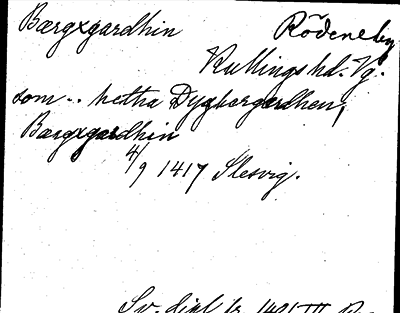 Bærgxgardhin Rödeneby
Kullings hd. Vg.
som .. hetha Dyghargardhen,
Bærgxgardhin
4/9 1417 Slesvig.
Sv. dipl. fr. 1401 III